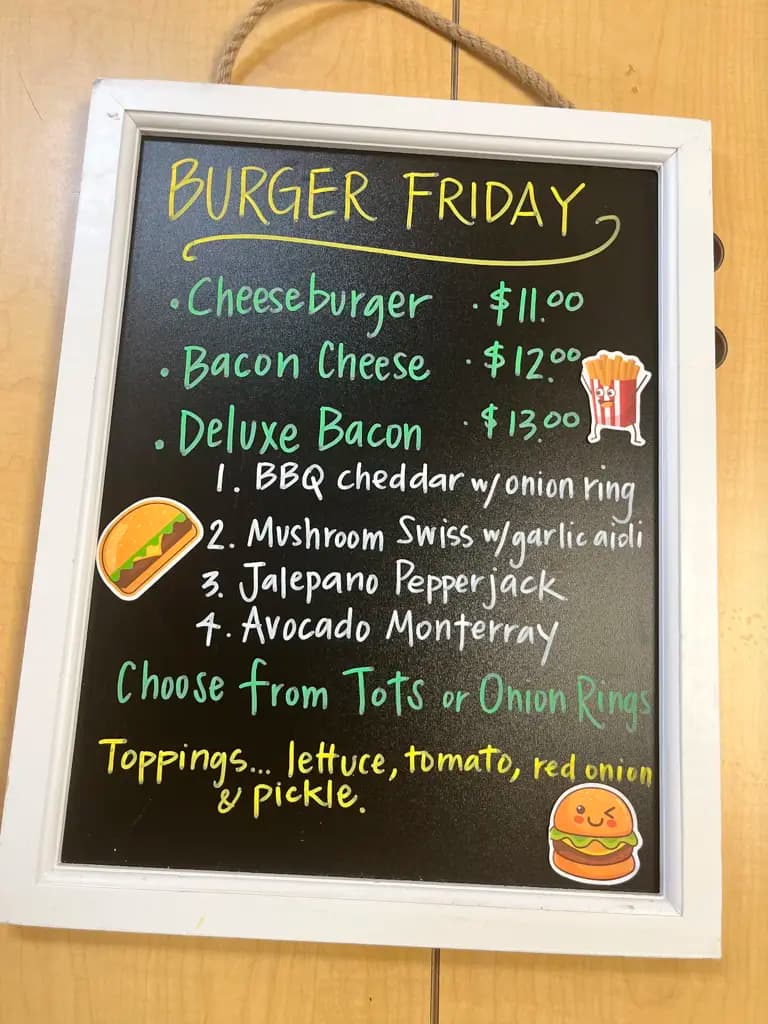 BURGER FRIDAY
. Cheeseburger . $11.00
. Bacon Cheese . $12.00
. Deluxe Bacon . $13.00
1. BBQ cheddar w/ onion ring
2. Mushroom Swiss w/garlic aidi
3. Jalepano Pepperjack
4. Avocado Monterray
Choose from Tots or Onion Rings
Toppings... lettuce, tomato, red onion
& pickle.